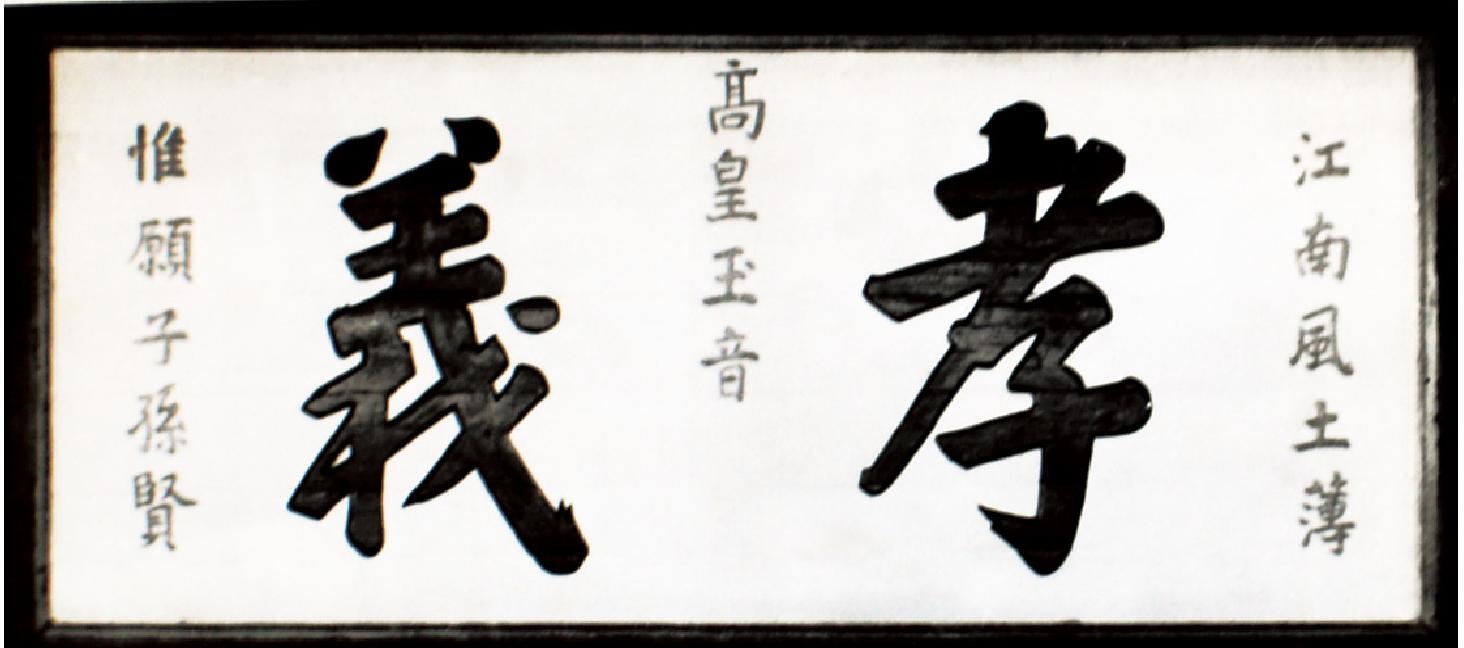 江南風土薄
孝
高皇玉音
義
惟願子孫賢